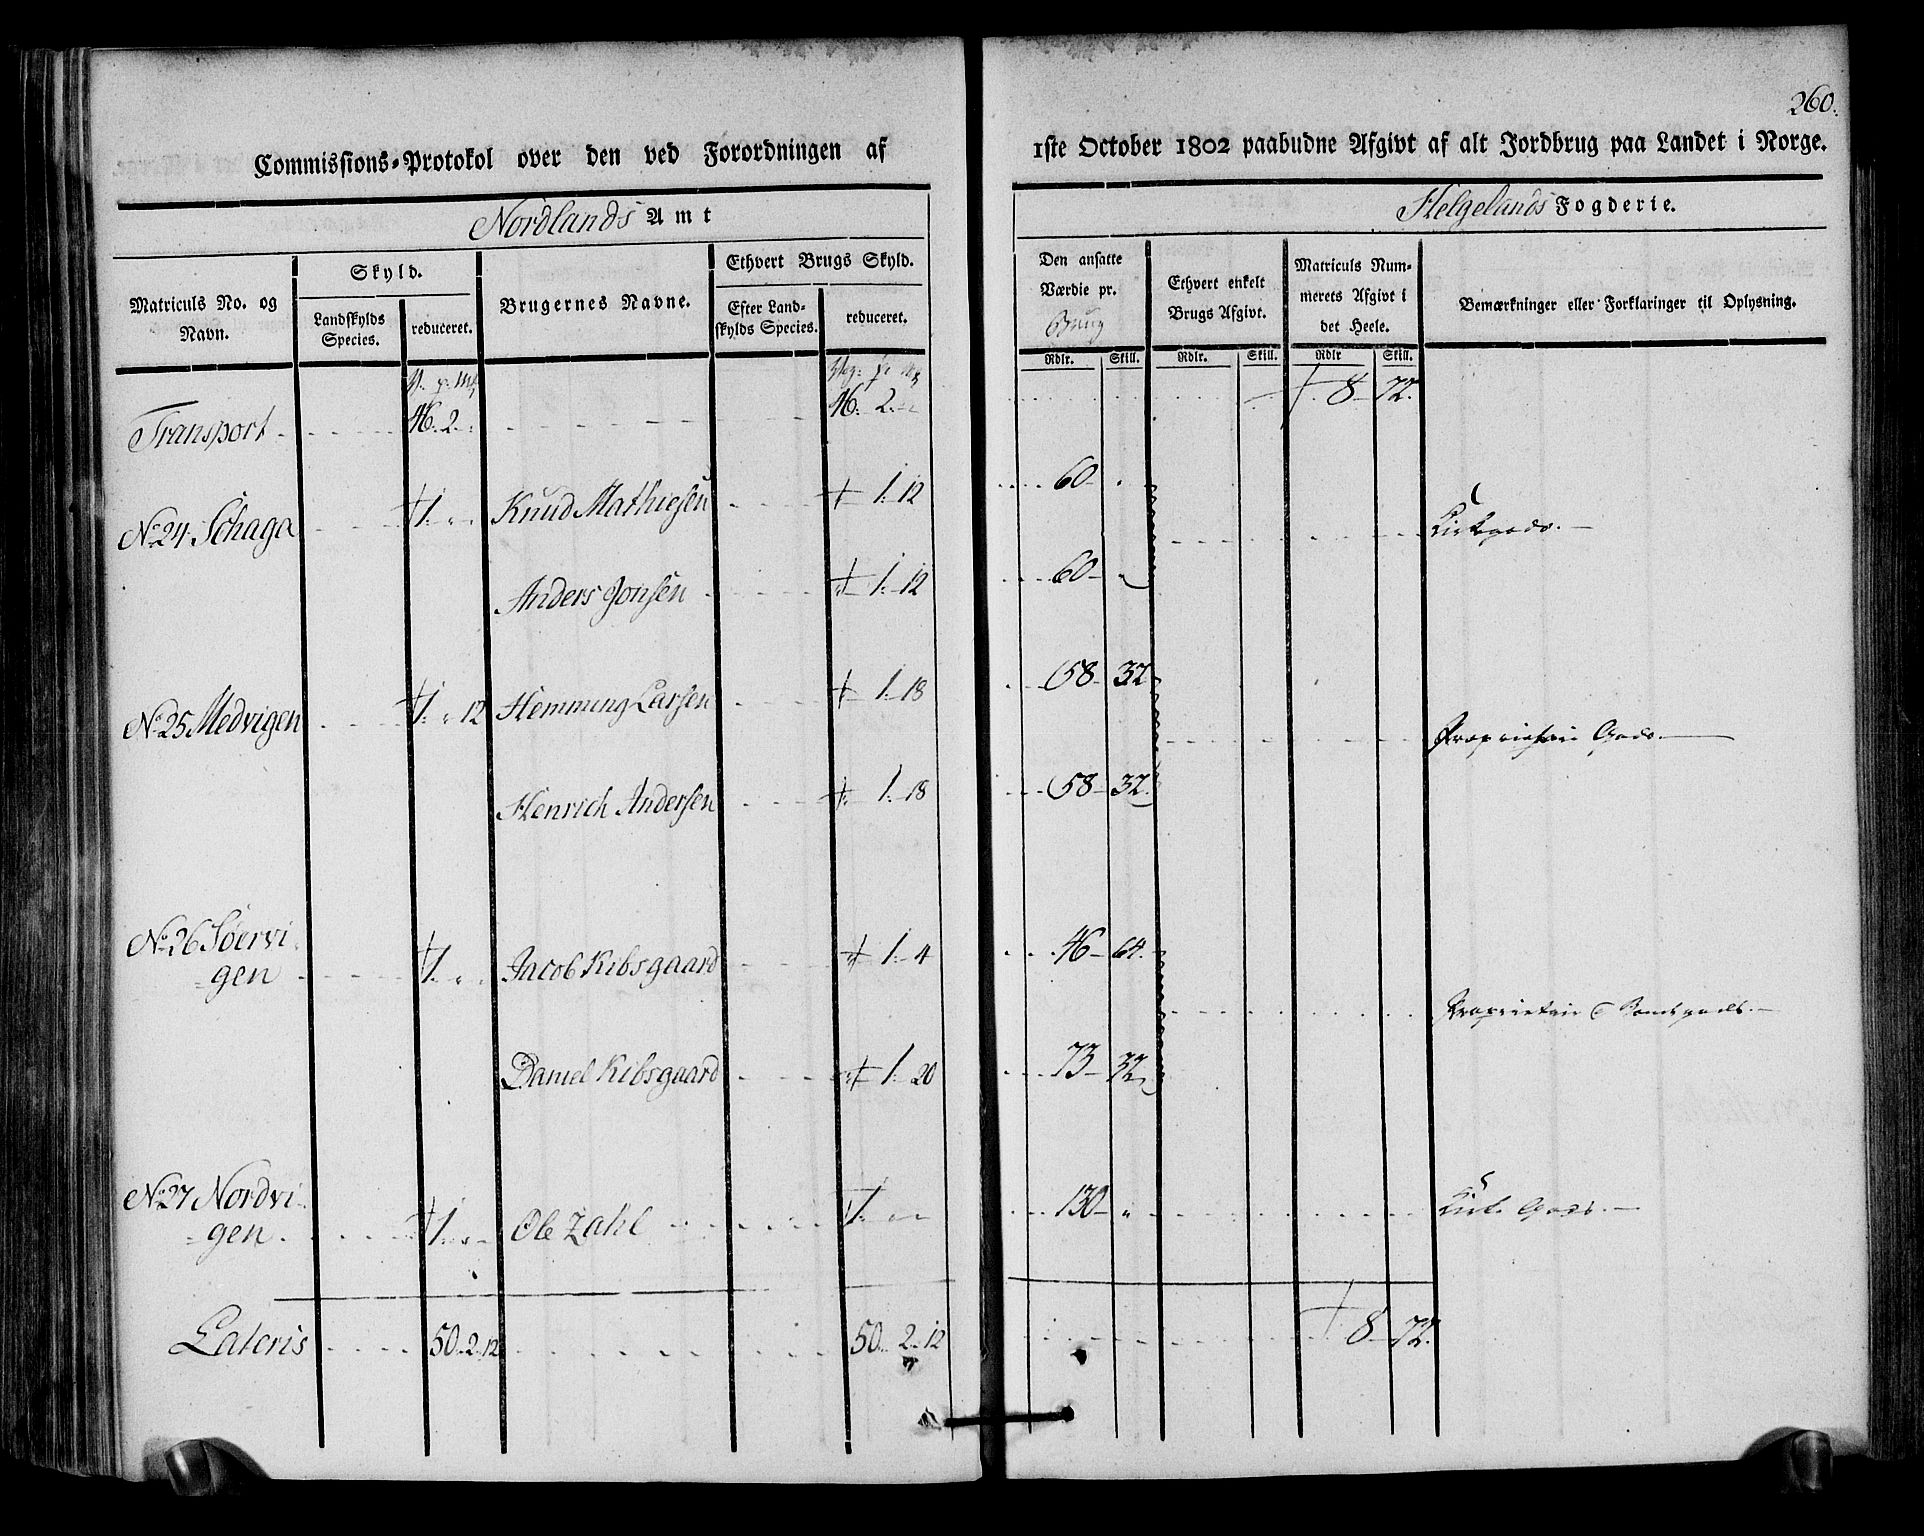 260.
Commissions-Protokol over den ved Forordningen af 1ste October 1802 paabudne Afgivt af alt Jordbrug paa Landet i Norge.
Nordlands Amt
Helgelands Fogderie.
Matriculs No. og Navn.
Skyld.
Landskylds Species.
reduceret.
Brugernes Navne.
Ethvert Brugs Skyld.
Efter Landskylds Species.
reduceret.
Den ansatte Værdie pr. Brug
Ethvert enkelt Brugs Afgivt.
Matriculs Nummerets Afgivt i det Heele.
Bemærkninger eller Forklaringer til Oplysning.
Rdlr. Skill. Rdlr. Skill. Rdlr Skill.
Transport 46. 2. 46. 2. 8 72.
No 24 Schaga 1. Knud Mathiesen 1. 12 60
Kirkegods.
Anders Jonsen 1. 12 60
No 25 Medvigen 1. 12 Hemming Larsen 1. 18 58 32
Proprietair Gods.
Henrich Andersen 1. 18 58 32.
No 26 Søervigen 1. Jacob Kibsgaard 1. 4 46 64.
Proprietair & Bondegods.
Daniel Kibsgaard 1. 20 73 32
No 27 Nordvigen 1. Ole Zahl 1. 130
Kirke Gods.
Lateris 50. 2. 12 50. 2. 12 8 72.